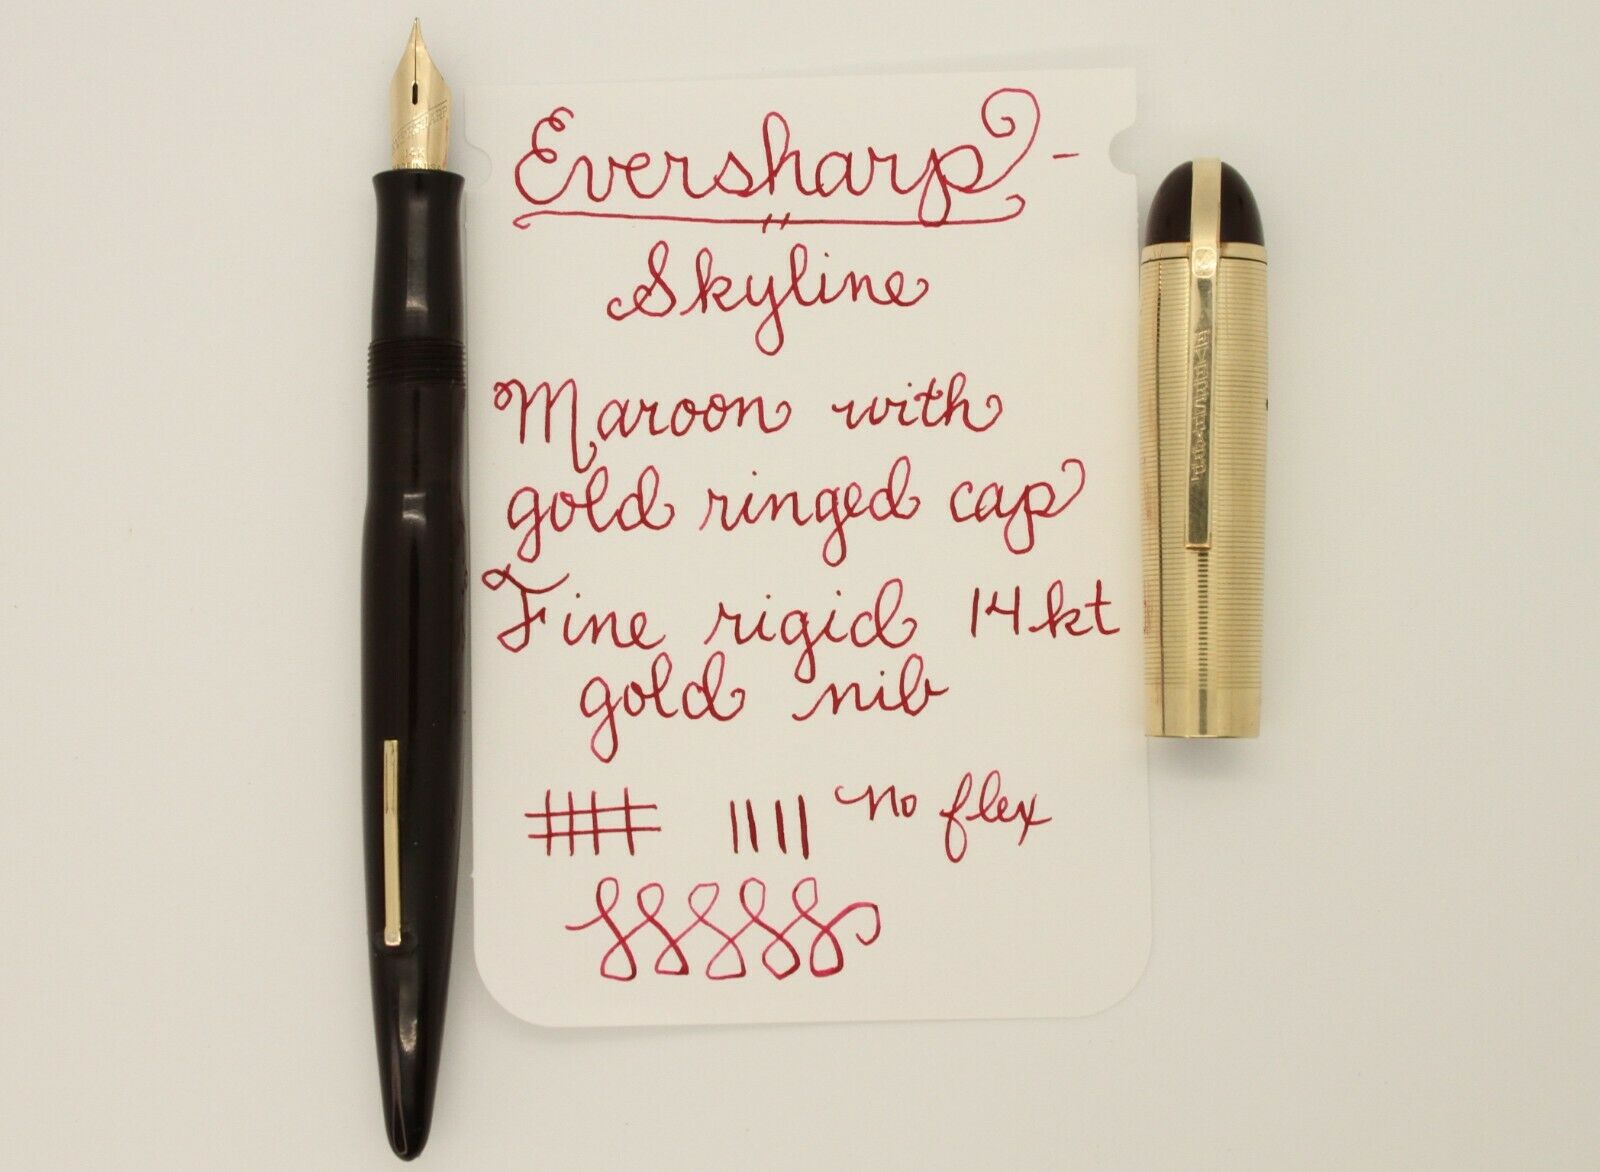 Eversharp -
Skyline
Maroon with
gold ringed cap
Fine rigid 14kt
gold nib
no flex
EVERSHARP
14K
EVERSHARP